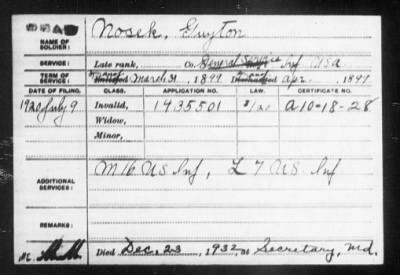 DEAD
NAME OF SOLDIER: Nosek, Guyton
SERVICE: Late rank, Co. General Service Inf USA
TERM OF SERVICE: Enlisted March 31, 1899 Discharged Apr., 1897
DATE OF FILING. CLASS. APPLICATION NO. LAW. CERTIFICATE NO.
1920 July 9 Invalid, 1435501 A10-18-28
Widow,
Minor,
ADDITIONAL SERVICES: M 16 US Inf, L 7 US Inf
REMARKS:
Died Dec. 23, 1932, at Secretary, Md.